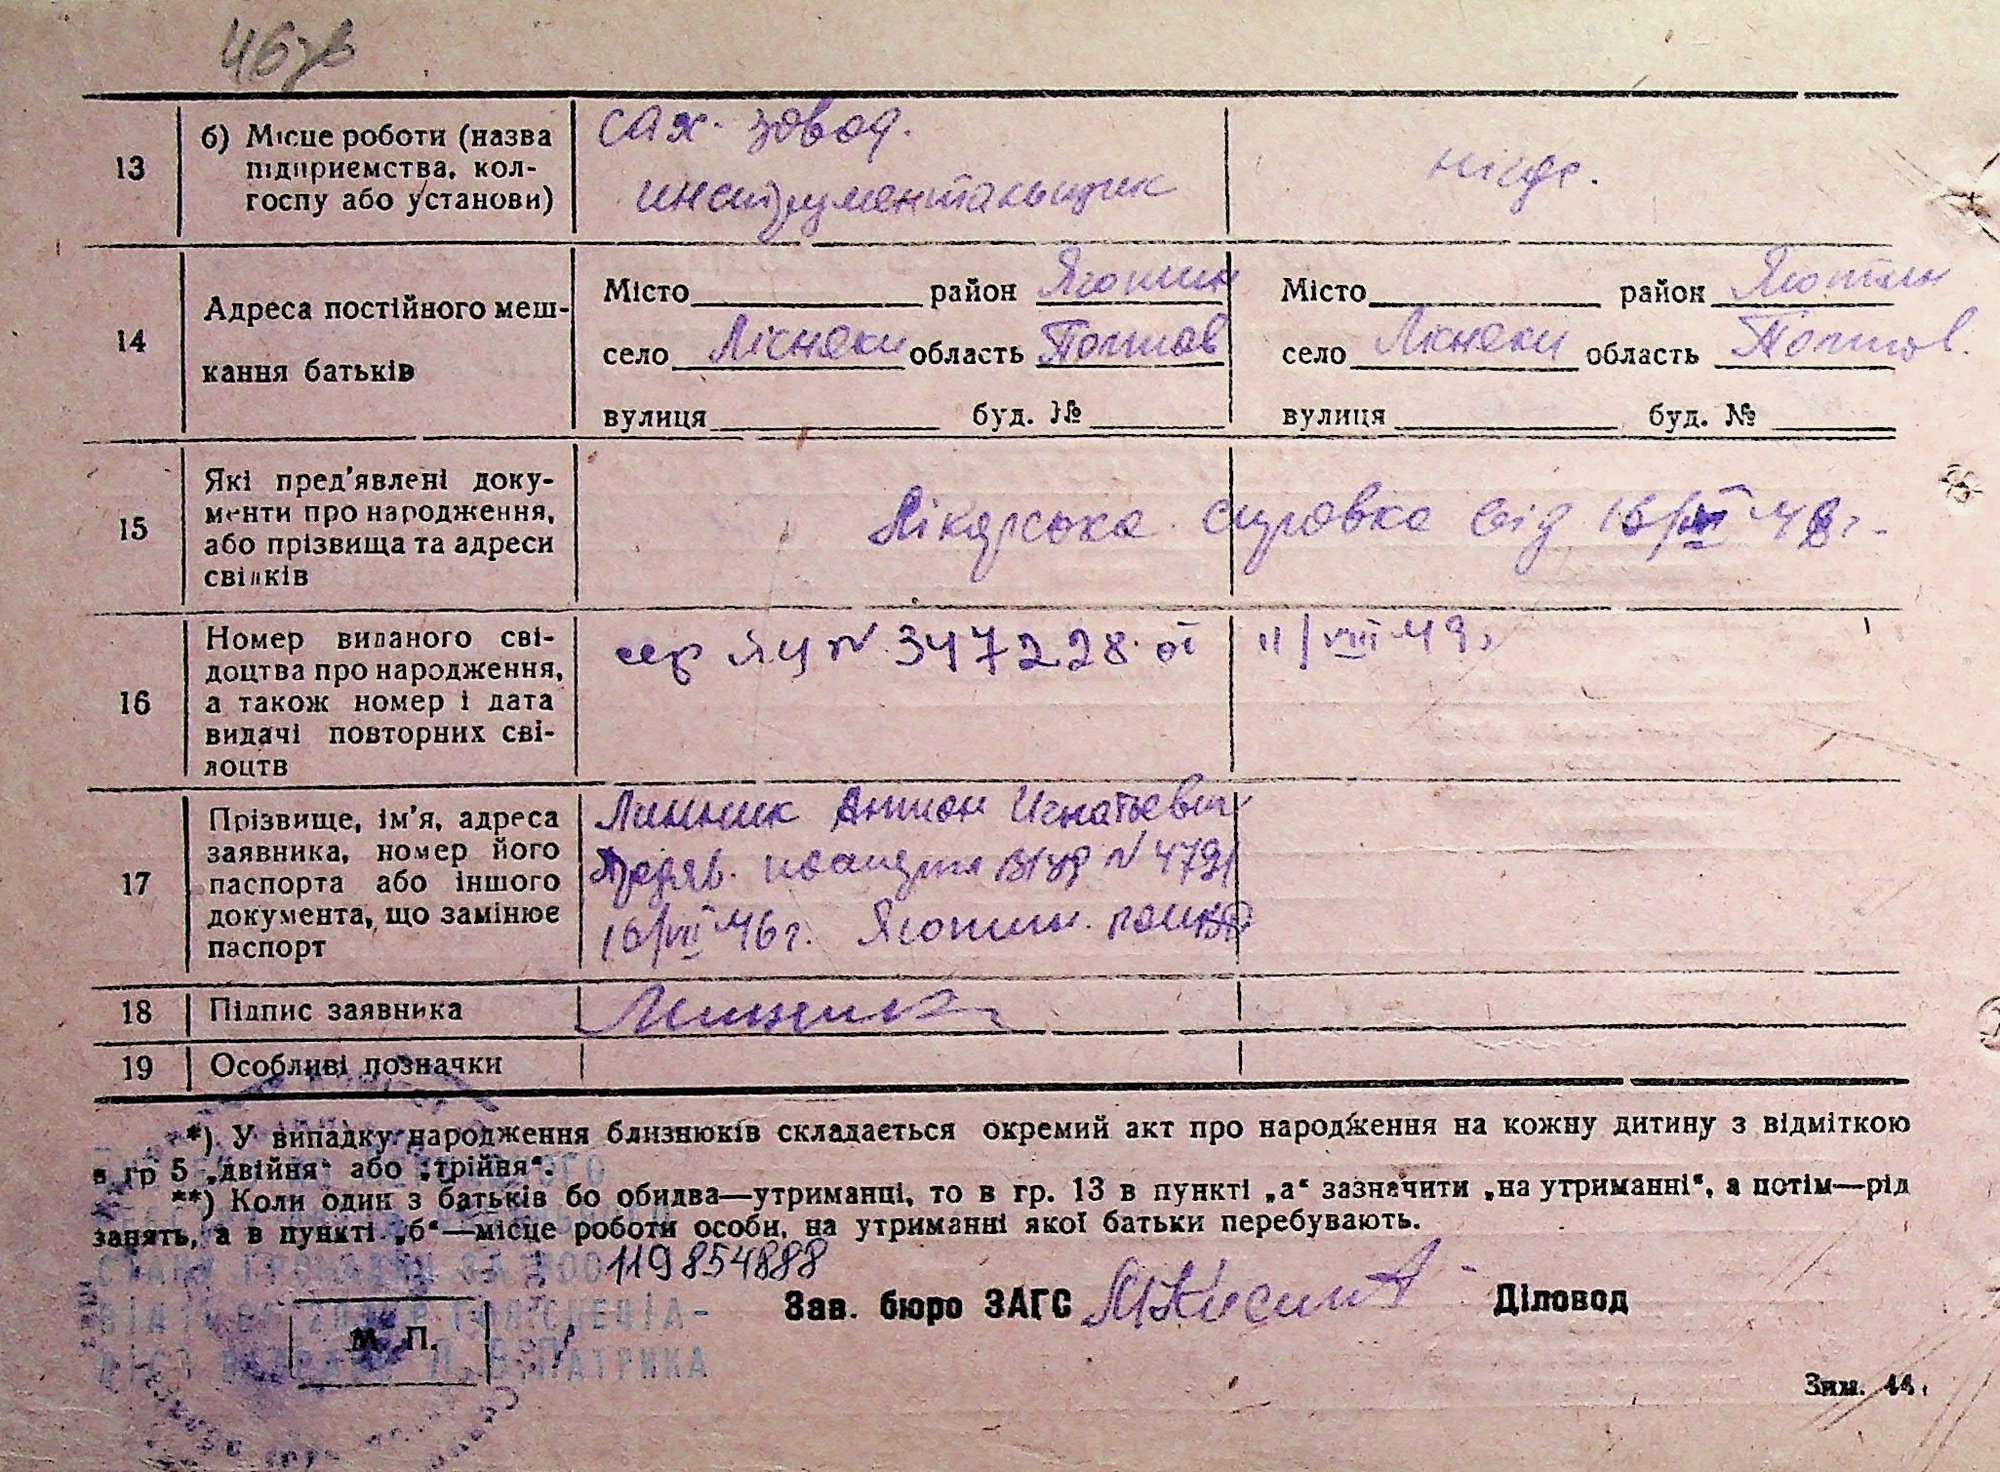 46
13
б) Місце роботи (назва
підприємства, кол-
госпу або установи)
сах. завод.
инструментальщик
14
Адреса постійного меш-
кання батьків
Місто район Яготин
село Лісняки область Полтав
вулиця буд. №
Місто район Яготин
село Лісняки область Полтав.
вулиця буд. №
15
Які пред'явлені доку-
менти про народження,
або прізвища та адреси
свідків
Лікарська справка від
16
Номер виданого сві-
доцтва про народження,
а також номер і дата
видачі повторних сві-
доцтв
сер ЯЦ N 347228 от 11/VIII 49
17
Прізвище, ім'я, адреса
заявника, номер його
паспорта або іншого
документа, що замінює
паспорт
Линник Антон Игнатьевич
16/VII 46 г. Яготин.
18
Підпис заявника
Линник
19
Особливі позначки
*) У випадку народження близнюків складається окремий акт про народження на кожну дитину з відміткою
в гр 5 „двійня“ або „трійня“.
**) Коли один з батьків бо обидва—утриманці, то в гр. 13 в пункті „а“ зазначити „на утриманні“, а потім—рід
занять, а в пункті „б“—місце роботи особи, на утриманні якої батьки перебувають.
119854888
Зав. бюро ЗАГС
Діловод
М. П.
ПАТРИКА
Зим. 44.